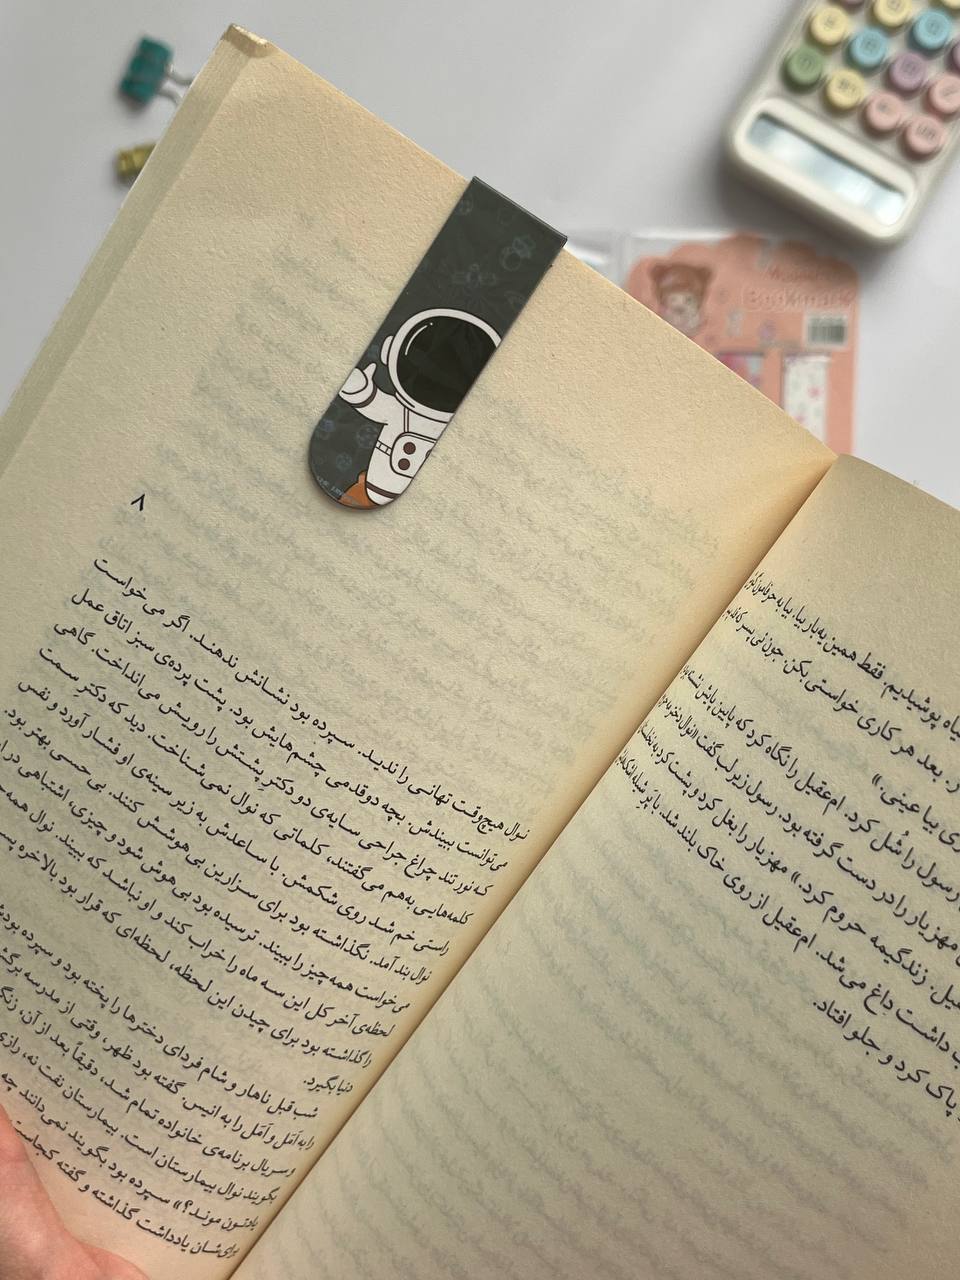 پوشیدیم. فقط همین یه بار بیا. بیا به
بعد هر کاری خواستی بکن. جون
بیا عینی.»
رسول را شُل کرد. ام‌عقیل را نگاه کرد که پایین پایش
مهزیار را در دست گرفته بود. رسول زیر لب گفت «نوال دختر
زندگیمه حروم کرد.» مهزیار را بغل کرد و پشت کرد به
داشت داغ می‌شد. ام‌عقیل از روی خاک بلند شد. با پر شیله
پاک کرد و جلو افتاد.
۸
نوال هیچ‌وقت تهانی را ندید. سپرده بود نشانش ندهند. اگر می‌خواست
می‌توانست ببیندش. بچه دو قدمی چشم‌هایش بود. پشت پرده‌ی سبز اتاق عمل
که نور تند چراغ جراحی سایه‌ی دو دکتر پشتش را رویش می‌انداخت. گاهی
کلمه‌هایی به‌هم می‌گفتند، کلماتی که نوال نمی‌شناخت. دید که دکترِ سمت
راستی خم شد روی شکمش. با ساعدش به زیر سینه‌ی او فشار آورد و نفس
نوال بند آمد. نگذاشته بود برای سزارین بی‌هوشش کنند. بی‌حسی بهتر بود.
می‌خواست همه چیز را ببیند. ترسیده بود بی‌هوش شود و چیزی، اشتباهی در
لحظه‌ی آخر کل این سه ماه را خراب کند و او نباشد که ببیند. نوال همه
را گذاشته بود برای چیدن این لحظه، لحظه‌ای که قرار بود بالاخره
دنیا بگیرد.
شب قبل ناهار و شام فردای دخترها را پخته بود و سپرده
را به اَمَل و اَمَل را به انیس. گفته بود ظهر، وقتی از مدرسه
و سریال برنامه‌ی خانواده تمام شد، دقیقاً بعد از آن،
بگویند نوال بیمارستان است. بیمارستان نفت نه،
یادتون موند؟» سپرده بود بگویند نمی‌دانند چه
برای‌شان یادداشت گذاشته و گفته کجاست
Bookmark